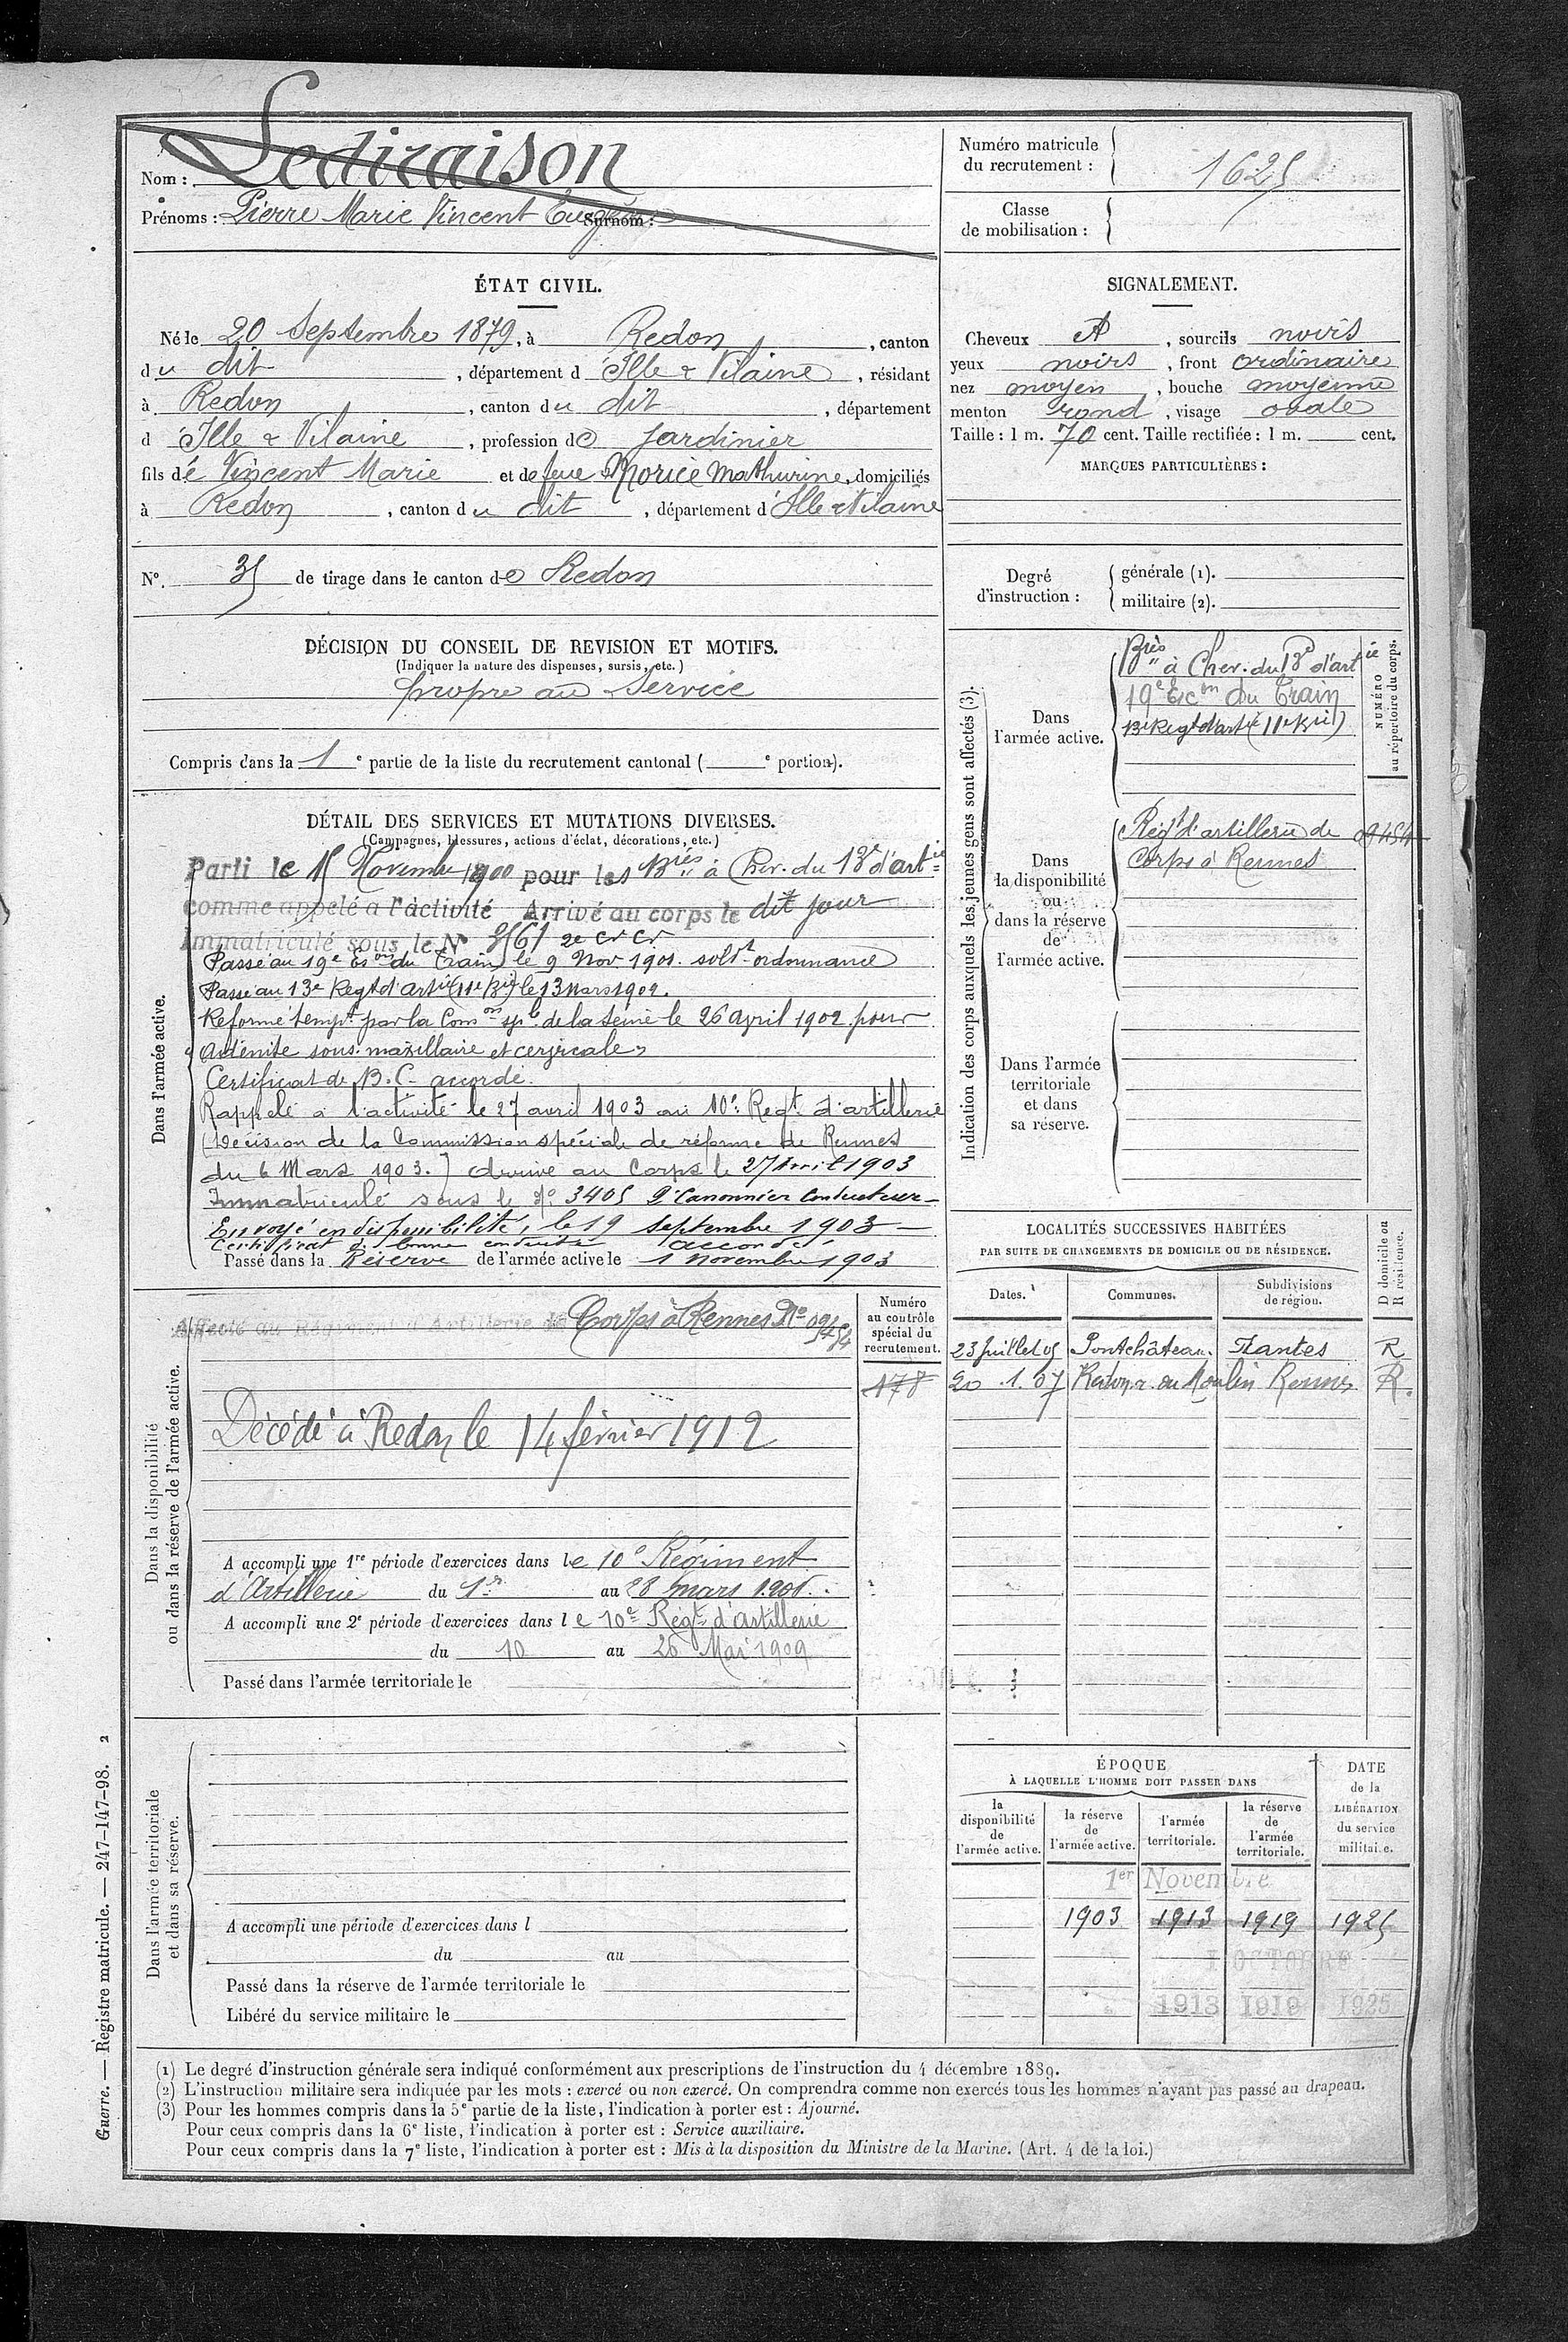 Nom : Lediraison
Prénoms : Pierre Marie Vincent Eugène Surnom :
Numéro matricule
du recrutement : 1625
Classe
de mobilisation :
ÉTAT CIVIL.
Né le 20 Septembre 1879, à Redon, canton
du dit, département d'Ille & Vilaine, résidant
à Redon, canton du dit, département
d'Ille & Vilaine, profession de Jardinier
fils de Vincent Marie et de feue Morice Mathurine, domiciliés
à Redon, canton du dit, département d'Ille & Vilaine
SIGNALEMENT.
Cheveux , sourcils noirs
yeux noirs, front ordinaire
nez moyen, bouche moyenne
menton rond, visage ovale
Taille : 1 m. 70 cent. Taille rectifiée : 1 m. cent.
MARQUES PARTICULIÈRES :
N°. 35 de tirage dans le canton de Redon
Degré
d'instruction :
générale (1).
militaire (2).
DÉCISION DU CONSEIL DE REVISION ET MOTIFS.
(Indiquer la nature des dispenses, sursis, etc.)
propre au Service
Compris dans la 1e partie de la liste du recrutement cantonal ( e portion).
Indication des corps auxquels les jeunes gens sont affectés (3).
Dans
l'armée active.
Bries à Chev. du 13e d'artie
19e Escon du Train
13e Regt d'artie (11e Brie)
NUMÉRO
au répertoire du corps.
Dans
la disponibilité
ou
dans la réserve
de
l'armée active.
Régt d'artillerie de
Corps à Rennes
09454
Dans l'armée
territoriale
et dans
sa réserve.
DÉTAIL DES SERVICES ET MUTATIONS DIVERSES.
(Campagnes, blessures, actions d'éclat, décorations, etc.)
Dans l'armée active.
Parti le 15 Novembre 1900 pour les Bries à Chev. du 13e d'artie
comme appelé à l'activité Arrivé au corps le dit jour
Immatriculé sous le N° 2e Cr Cr
Passé au 19e Eson du Train le 9 Nov. 1901. soldt ordonnance
Passé au 13e Regt d'Artie (11e Bie) le 13 Mars 1902.
Réformé tempt par la Comon sple de la Seine le 26 avril 1902 pour
"Adénite sous-maxillaire et cervicale"
Certificat de B. C. accordé.
Rappelé à l'activité le 27 avril 1903 au 10e Regt d'artillerie
(Décision de la Commission spéciale de réforme de Rennes
du 6 Mars 1903.) Arrivé au Corps le 27 Avril 1903
Immatriculé sous le No 3405 2e Canonnier Conducteur
Envoyé en disponibilité, le 19 septembre 1903
Certificat de bonne conduite accordé
Passé dans la Réserve de l'armée active le 1 Novembre 1903
LOCALITÉS SUCCESSIVES HABITÉES
PAR SUITE DE CHANGEMENTS DE DOMICILE OU DE RÉSIDENCE.
Dates. Communes. Subdivisions
de région.
D domicile ou
R résidence.
23 Juillet 05 Pontchâteau. Nantes R
20 . 1. 07 Redon, r. du Moulin Rennes R.
Dans la disponibilité
ou dans la réserve de l'armée active.
Affecté au Régiment d'Artillerie de Corps à Rennes No 09454
Numéro
au contrôle
spécial du
recrutement.
178
Décédé à Redon le 14 février 1912
A accompli une 1re période d'exercices dans le 10e Régiment
d'Artillerie du 1er au 28 mars
A accompli une 2e période d'exercices dans le 10e Régt d'artillerie
du 10 au 26 Mai 1909
Passé dans l'armée territoriale le
Dans l'armée territoriale
et dans sa réserve.
A accompli une période d'exercices dans l
du au
Passé dans la réserve de l'armée territoriale le
Libéré du service militaire le
ÉPOQUE
À LAQUELLE L'HOMME DOIT PASSER DANS
la
disponibilité
de
l'armée active.
la réserve
de
l'armée active.
l'armée
territoriale.
la réserve
de
l'armée
territoriale.
DATE
de la
LIBÉRATION
du service
militaire.
1er Novembre
1903 1913 1919 1925
1 OCTOBRE
1913 1919 1925
(1) Le degré d'instruction générale sera indiqué conformément aux prescriptions de l'instruction du 4 décembre 1889.
(2) L'instruction militaire sera indiquée par les mots : exercé ou non exercé. On comprendra comme non exercés tous les hommes n'ayant pas passé au drapeau.
(3) Pour les hommes compris dans la 5e partie de la liste, l'indication à porter est : Ajourné.
Pour ceux compris dans la 6e liste, l'indication à porter est : Service auxiliaire.
Pour ceux compris dans la 7e liste, l'indication à porter est : Mis à la disposition du Ministre de la Marine. (Art. 4 de la loi.)
Guerre. — Registre matricule. — 247-147-98. 2